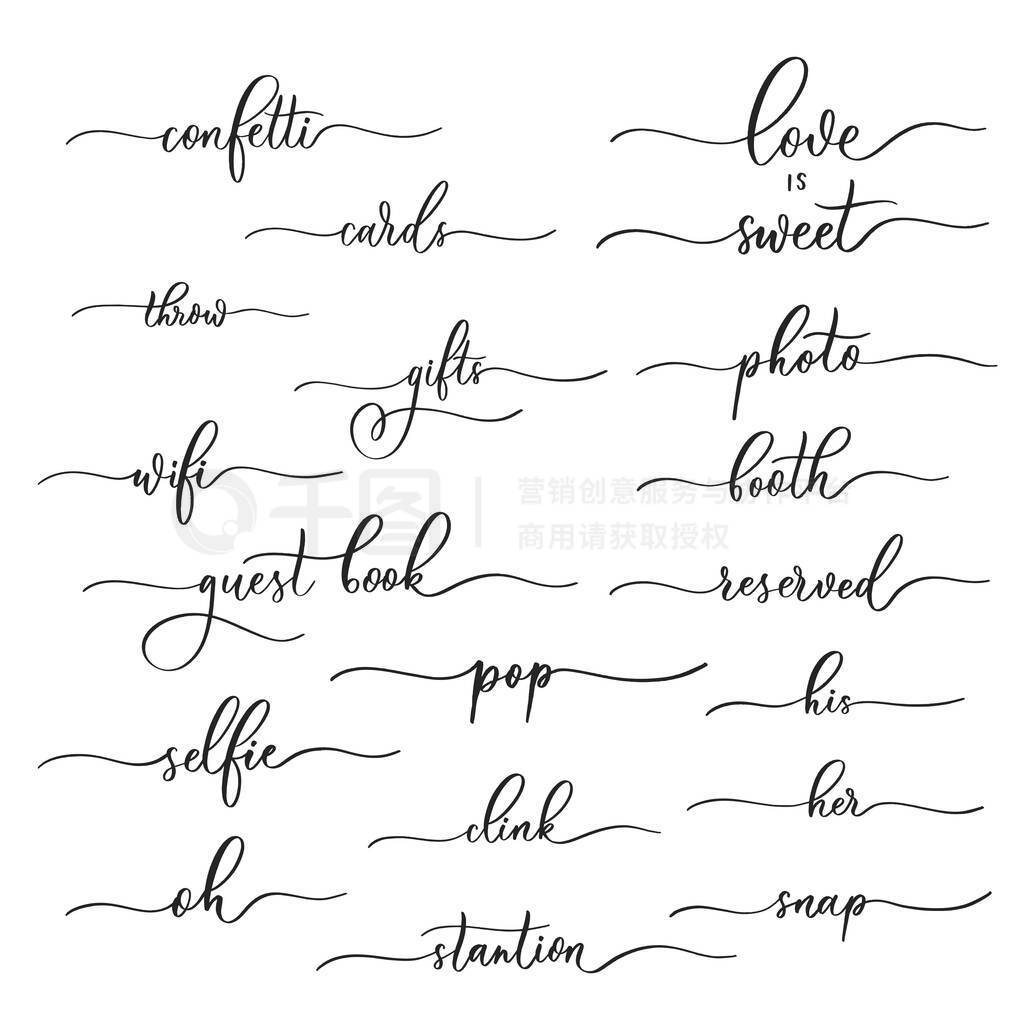 confetti
love
is
cards
sweet
throw
gifts
photo
wifi
booth
千图
营销创意服务与
商用请获取授权
guest book
reserved
pop
his
selfie
clink
her
oh
snap
stantion